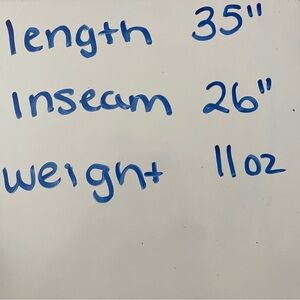 length 35"
inseam 26"
weight 11oz